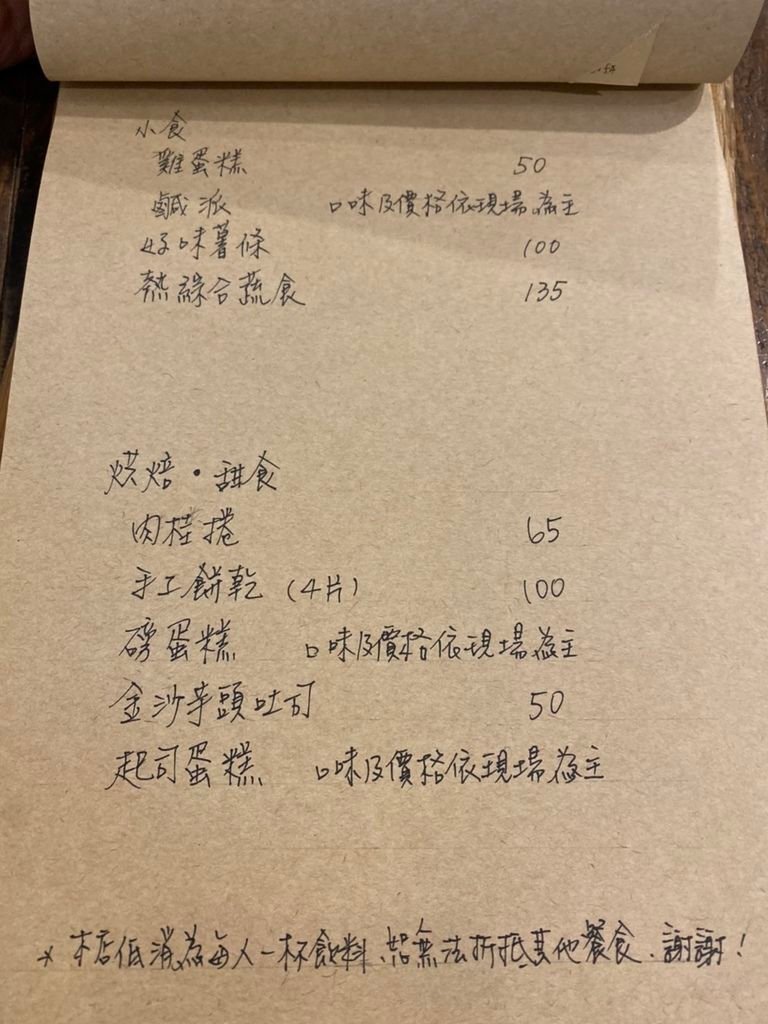 小食
雞蛋糕 50
鹹派 口味及價格依現場為主
好味薯條 100
熱綜合蔬食 135
烘焙・甜食
肉桂捲 65
手工餅乾（4片） 100
磅蛋糕 口味及價格依現場為主
金沙芋頭吐司 50
起司蛋糕 口味及價格依現場為主
* 本店低消為每人一杯飲料、恕無法折抵其他餐食．謝謝！